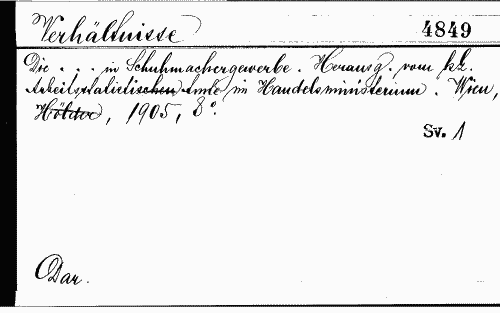 Verhältnisse 4849
Die . . . in Schuhmachergewerbe. Herausg. vom kk.
Arbeitsstatistischen Amte im Handelsministerium. Wien,
Hölder, 1905, 8°.
Sv. 1
Dar.